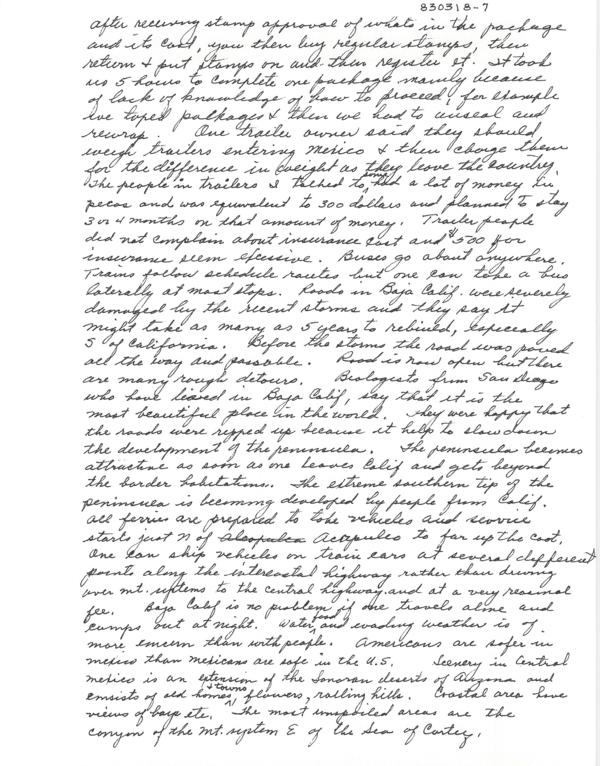 830318-7
after receiving stamp approval of whats in the package
and its cost, you then buy regular stamps, then
return & put stamps on and then register it. It took
us 5 hours to complete one package mainly because
of lack of knowledge of how to proceed, for example
we taped packages & then we had to unseal and
rewrap. One trailer owner said they should
weigh trailers entering Mexico & then charge them
for the difference in weight as they leave the country.
The people in trailers I talked to, some had a lot of money in
pecos and was equivalent to 300 dollars and planned to stay
3 or 4 months on that amount of money. Trailer people
did not complain about insurance cost and $500 for
insurance seem excessive. Buses go about anywhere.
Trains follow schedule routes but one can take a bus
laterally at most stops. Roads in Baja Calif. were severely
damaged by the recent storms and they say it
might take as many as 5 years to rebuild, especially
S of California. Before the storms the road was paved
all the way and passable. Road is now open but there
are many rough detours. Biologists from San Diego
who have lived in Baja Calif, say that it is the
most beautiful place in the world. They were happy that
the roads were ripped up because it help to slow down
the development of the peninsula. The peninsula becomes
attractive as soon as one leaves Calif and gets beyond
the border habitations. The extreme southern tip of the
peninsula is becoming developed by people from Calif.
All ferries are prepared to take vehicles and service
starts just N of Acapulco to far up the coast.
One can ship vehicles on train cars at several different
points along the intercoastal highway rather than driving
over mt. systems to the central highway and at a very reasonal
fee. Baja Calif is no problem if one travels alone and
camps out at night. Water, food and evading weather is of
more concern than with people. Americans are safer in
mexico than mexicans are safe in the U.S. Scenery in Central
mexico is an extension of the Sonoran deserts of Arizona and
consists of old homes & towns, flowers, rolling hills. Coastal area have
views of bays etc. The most unspoiled areas are the
canyon of the Mt. system E of the Sea of Cortez.